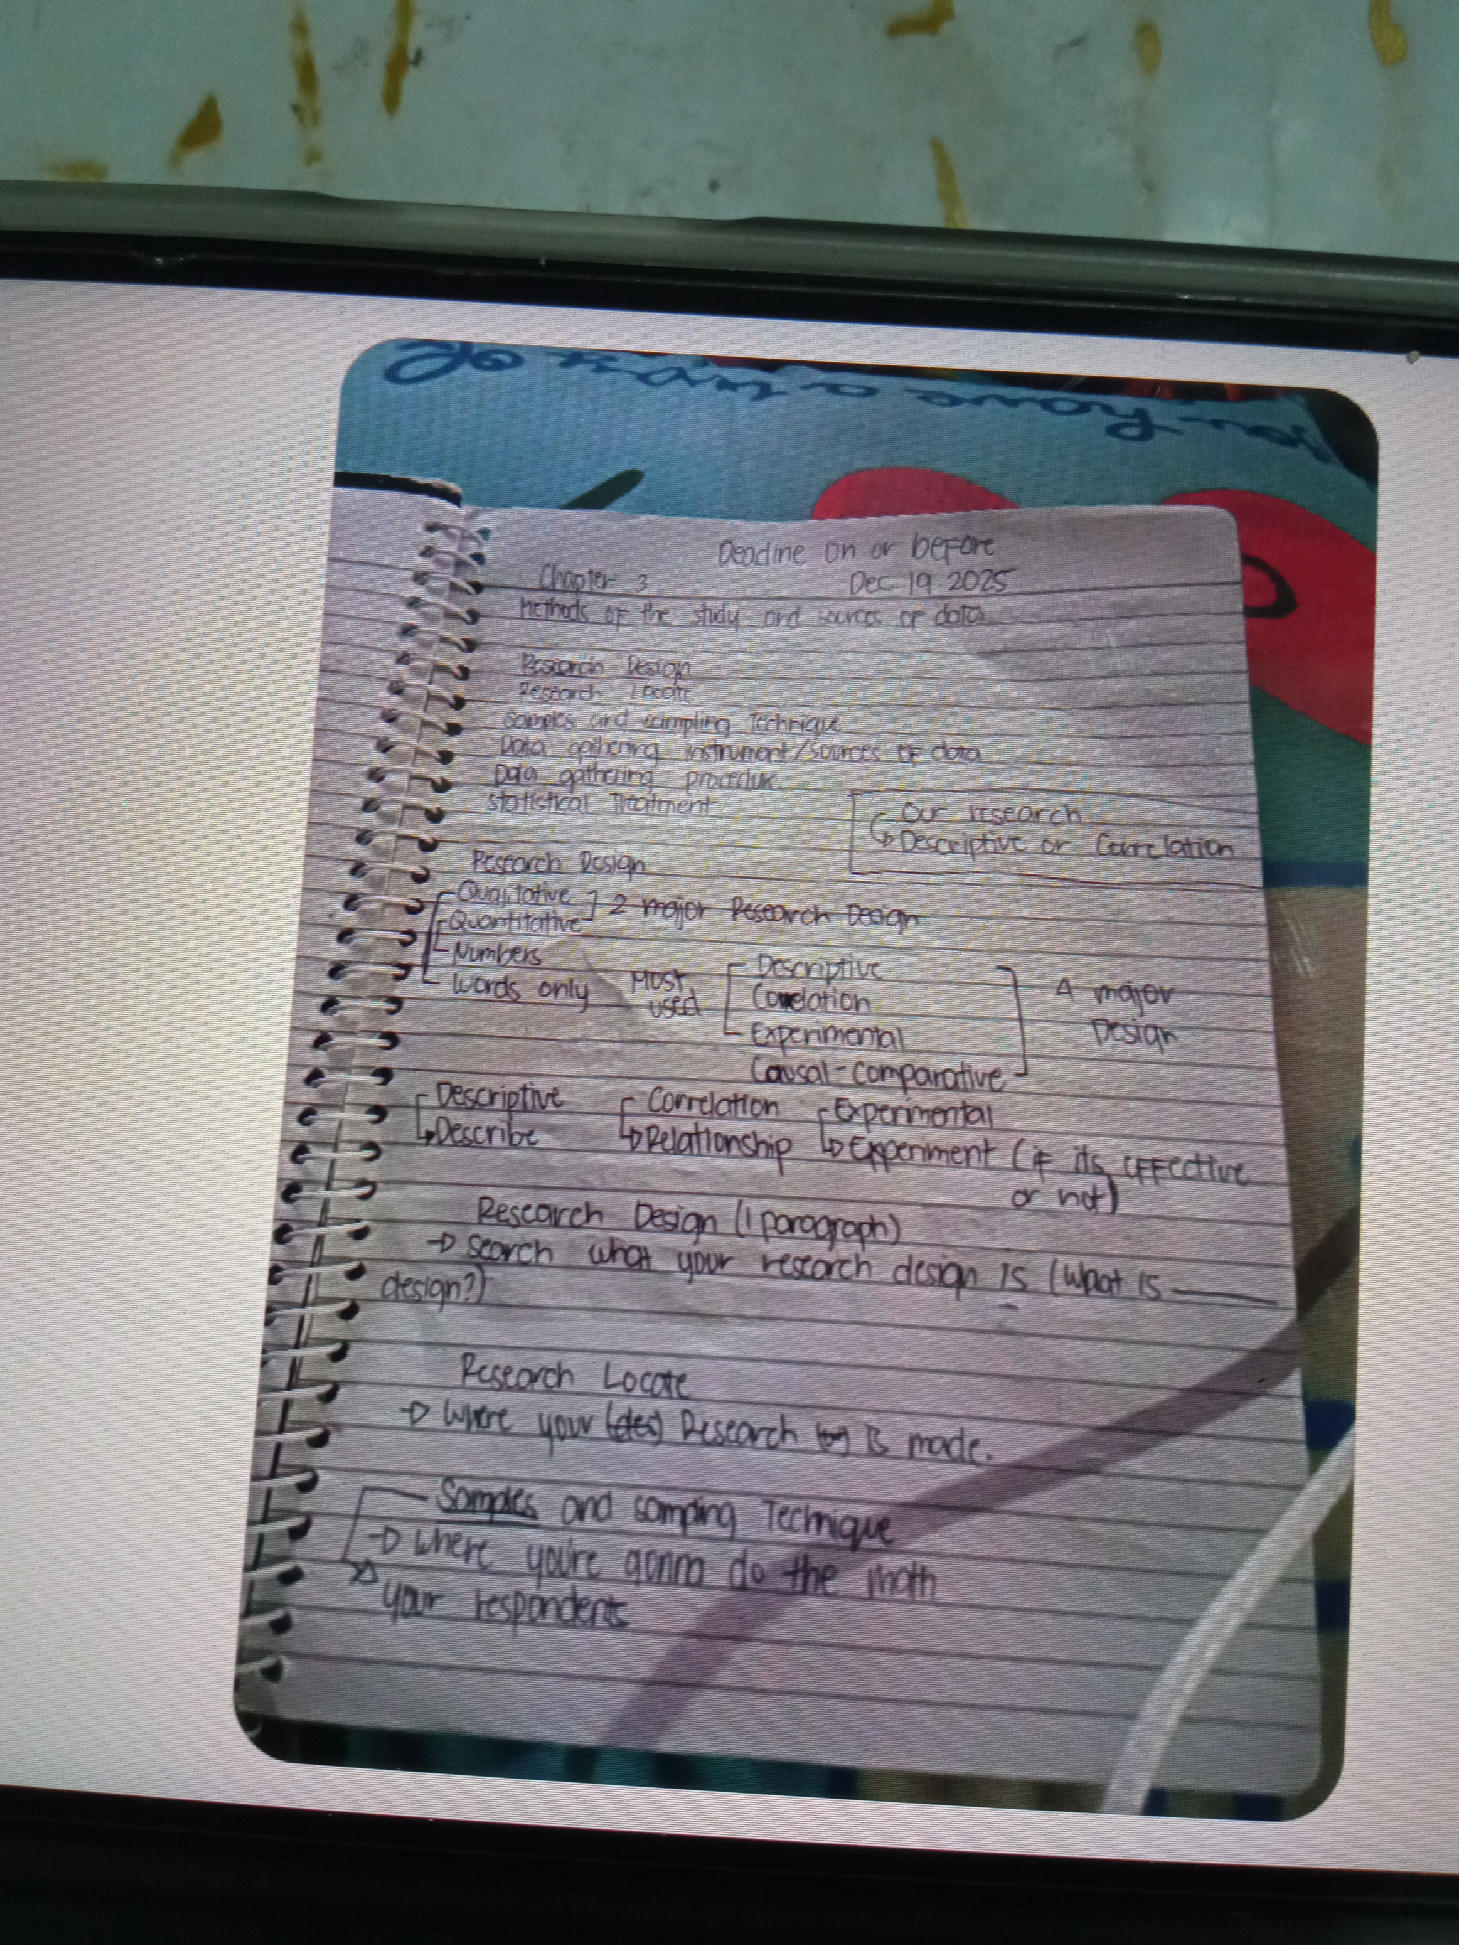 you have a typ of
Deadline on or before
Chapter 3 Dec 19 2025
Methods of the study and sources of data
Research Design
Research Locate
Samples and sampling Technique
Data gathering instrument/sources of data
Data gathering procedure
Statistical Treatment
Our research
Descriptive or Correlation
Research Design
Qualitative
Quantitative
2 major Research Design
Numbers
Words only
Most used
Descriptive
Correlation
Experimental
Causal-comparative
4 major Design
Descriptive
Describe
Correlation
Relationship
Experimental
Experiment (if its effective
or not)
Research Design (1 paragraph)
→ search what your research design is (what is ____
design?)
Research Locate
→ Where your Research is made.
Samples and Sampling Technique
→ where you're gonna do the math
your respondents